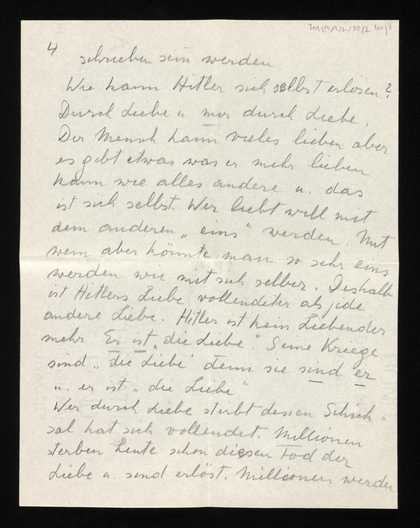 4
schrieben sein werden
Wie kann Hitler sich selbst erlösen?
Durch Liebe u nur durch Liebe.
Der Mensch kann vieles lieben aber
es gibt etwas was er mehr lieben
kann wie alles andere u. das
ist sich selbst. Wer liebt will mit
dem anderen „eins" werden. Mit
wem aber könnte man so sehr eins
werden wie mit sich selber. Deshalb
ist Hitlers Liebe vollendeter als jede
andere Liebe. Hitler ist kein Liebender
mehr Er ist „die Liebe". Seine Kriege
sind „die Liebe" denn sie sind er
u. er ist „die Liebe"
Wer durch Liebe stirbt dessen Schick-
sal hat sich vollendet. Millionen
sterben heute schon diesen Tod der
Liebe u. sind erlöst. Millionen werden